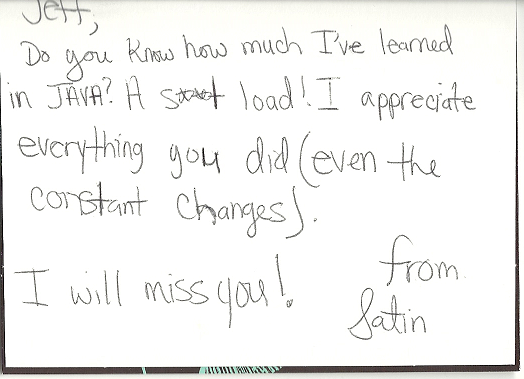 Jeff,
Do you know how much I've learned
in JAVA? A load! I appreciate
everything you did (even the
constant changes).
I will miss you!
from
Satin